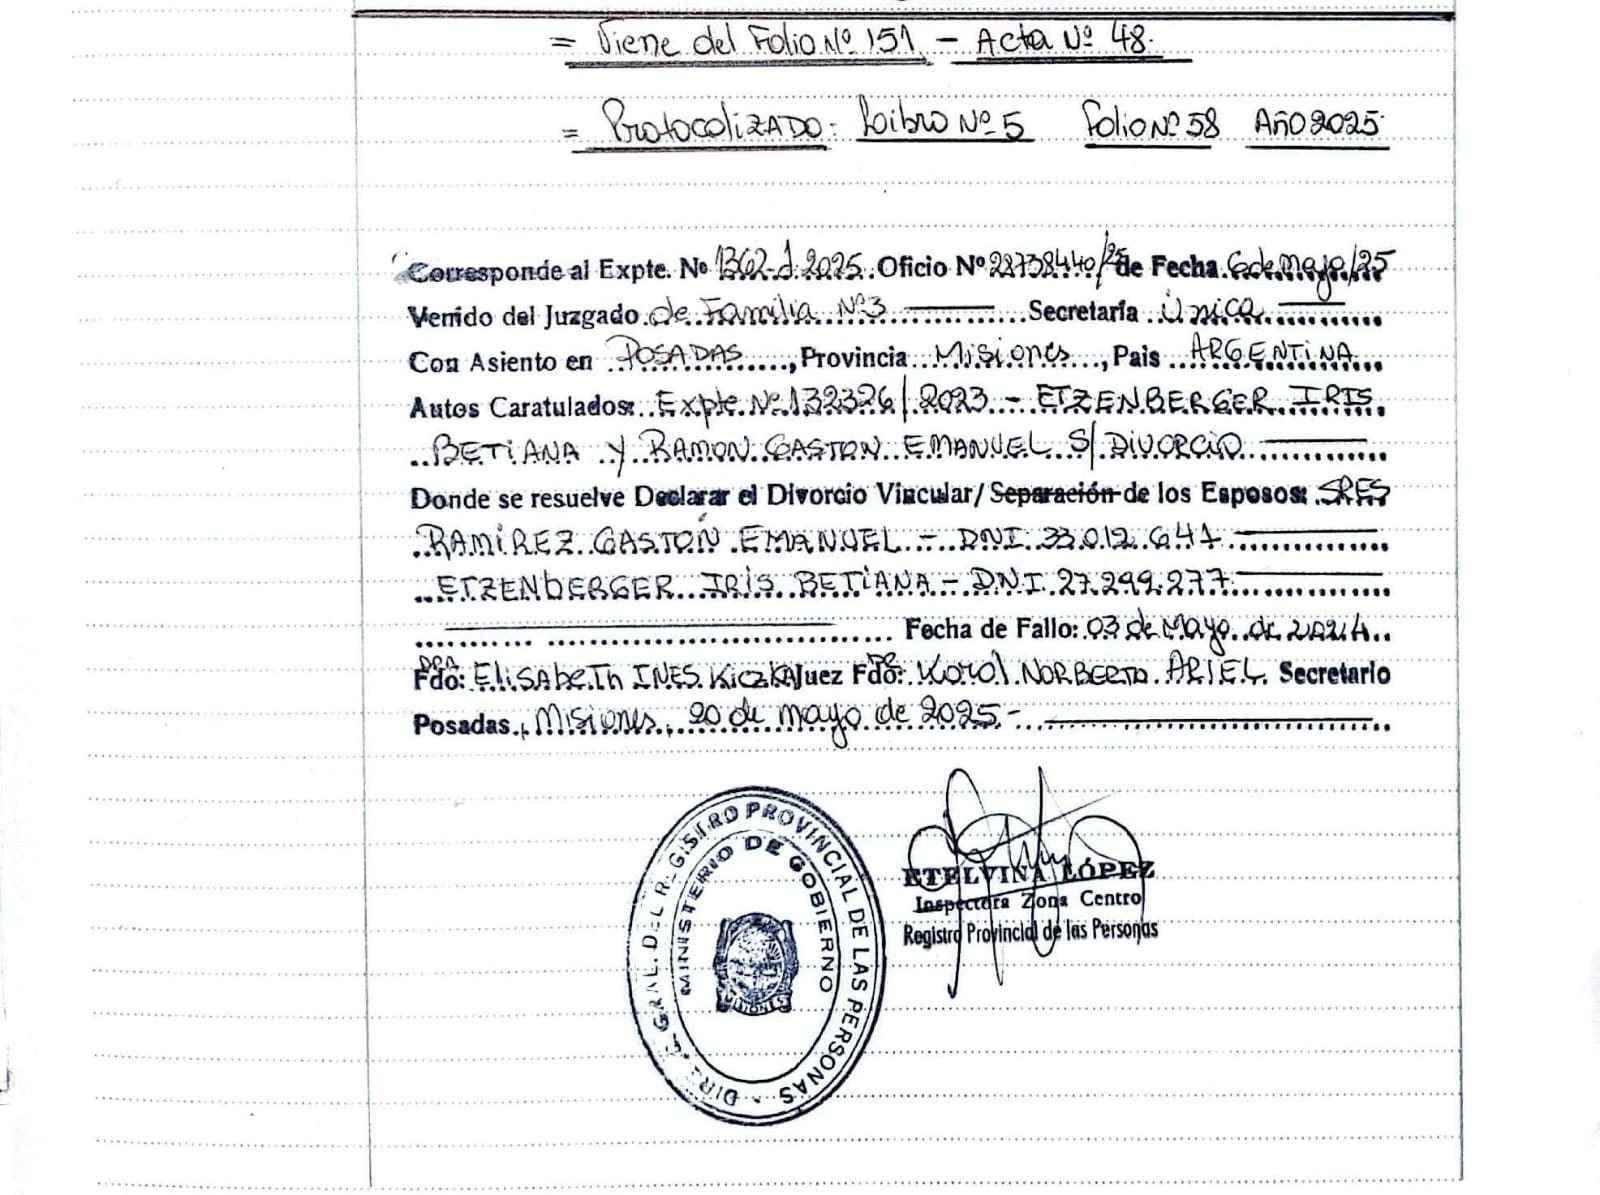 = Viene del Folio Nº 151 - Acta Nº 48.
= Protocolizado: Libro Nº 5 Folio Nº 58 Año 2025
Corresponde al Expte. Nº 1362-J-2025 Oficio Nº 28738440/25 de Fecha 6 de mayo/25
Venido del Juzgado de Familia Nº 3 Secretaría Única
Con Asiento en POSADAS, Provincia Misiones, Pais ARGENTINA
Autos Caratulados: Expte Nº 132326/2023 - ETZENBERGER IRIS
BETIANA Y RAMON GASTON EMANUEL S/ DIVORCIO
Donde se resuelve Declarar el Divorcio Vincular/ Separación de los Esposos: SRES
RAMIREZ GASTÓN EMANUEL - DNI 33.012.641
ETZENBERGER IRIS BETIANA - DNI 27.299.277
Fecha de Fallo: 03 de Mayo de 2024
Fdo: DRA Elisabeth INES Kiczka Juez Fdo: DR Korol NORBERTO ARIEL Secretario
Posadas, Misiones, 20 de mayo de 2025-
DIREC. GRAL. DEL REGISTRO PROVINCIAL DE LAS PERSONAS
MINISTERIO DE GOBIERNO
MISIONES
ETELVINA LÓPEZ
Inspectora Zona Centro
Registro Provincial de las Personas